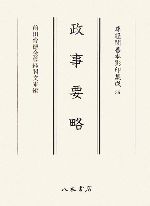 尊経閣善本影印集成 36
政事要略
前田育徳会尊経閣文庫編
八木書店